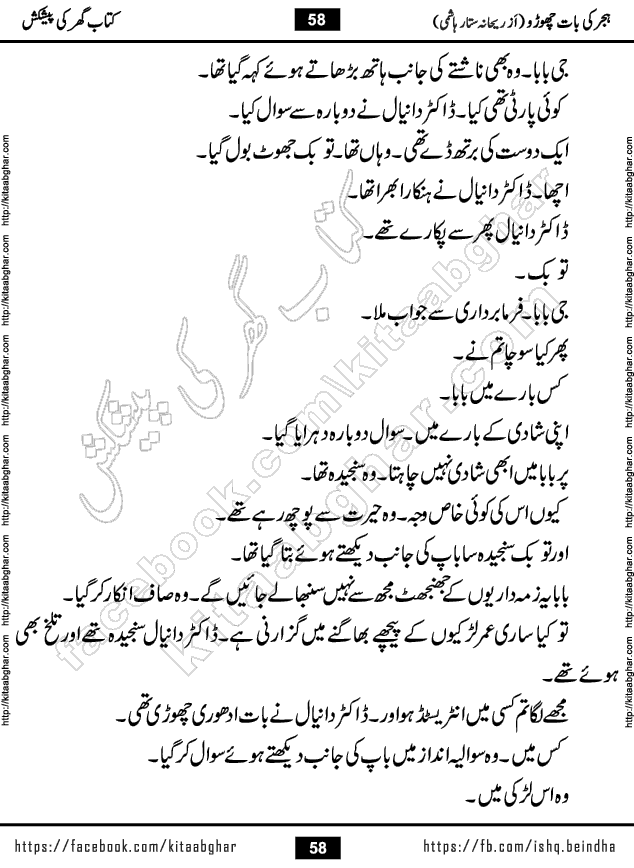 ہجر کی بات چھوڑو (از ریحانہ ستار ہاشمی)
58
کتاب گھر کی پیشکش
جی بابا۔ وہ بھی ناشتے کی جانب ہاتھ بڑھاتے ہوئے کہہ گیا تھا۔
کوئی پارٹی تھی کیا۔ ڈاکٹر دانیال نے دوبارہ سے سوال کیا۔
ایک دوست کی برتھ ڈے تھی۔ وہاں تھا۔ توبک جھوٹ بول گیا۔
اچھا۔ ڈاکٹر دانیال نے ہنکارا بھرا تھا۔
ڈاکٹر دانیال پھر سے پکارے تھے۔
توبک۔
جی بابا۔ فرمابرداری سے جواب ملا۔
پھر کیا سوچا تم نے۔
کس بارے میں بابا۔
اپنی شادی کے بارے میں۔ سوال دوبارہ دہرایا گیا۔
پر بابا میں ابھی شادی نہیں چاہتا۔ وہ سنجیدہ تھا۔
کیوں اس کی کوئی خاص وجہ۔ وہ حیرت سے پوچھ رہے تھے۔
اور توبک سنجیدہ سا باپ کی جانب دیکھتے ہوئے بتا گیا تھا۔
بابا یہ زمہ داریوں کے جھنجھٹ مجھ سے نہیں سنبھالے جائیں گے۔ وہ صاف انکار کر گیا۔
تو کیا ساری عمر لڑکیوں کے پیچھے بھاگنے میں گزارنی ہے۔ ڈاکٹر دانیال سنجیدہ تھے اور تلخ بھی
ہوئے تھے۔
مجھے لگا تم کسی میں انٹریسٹڈ ہو اور۔ ڈاکٹر دانیال نے بات ادھوری چھوڑی تھی۔
کس میں۔ وہ سوالیہ انداز میں باپ کی جانب دیکھتے ہوئے سوال کر گیا۔
وہ اس لڑکی میں۔
کتاب گھر کی پیشکش
facebook.com/kitaabghar
kitaabghar.com
http://kitaabghar.com http://kitaabghar.com http://kitaabghar.com http://kitaabghar.com http://kitaabghar.com http://kitaabghar.com
http://kitaabghar.com http://kitaabghar.com http://kitaabghar.com http://kitaabghar.com http://kitaabghar.com http://kitaabghar.com
https://facebook.com/kitaabghar
58
https://fb.com/ishq.beindha